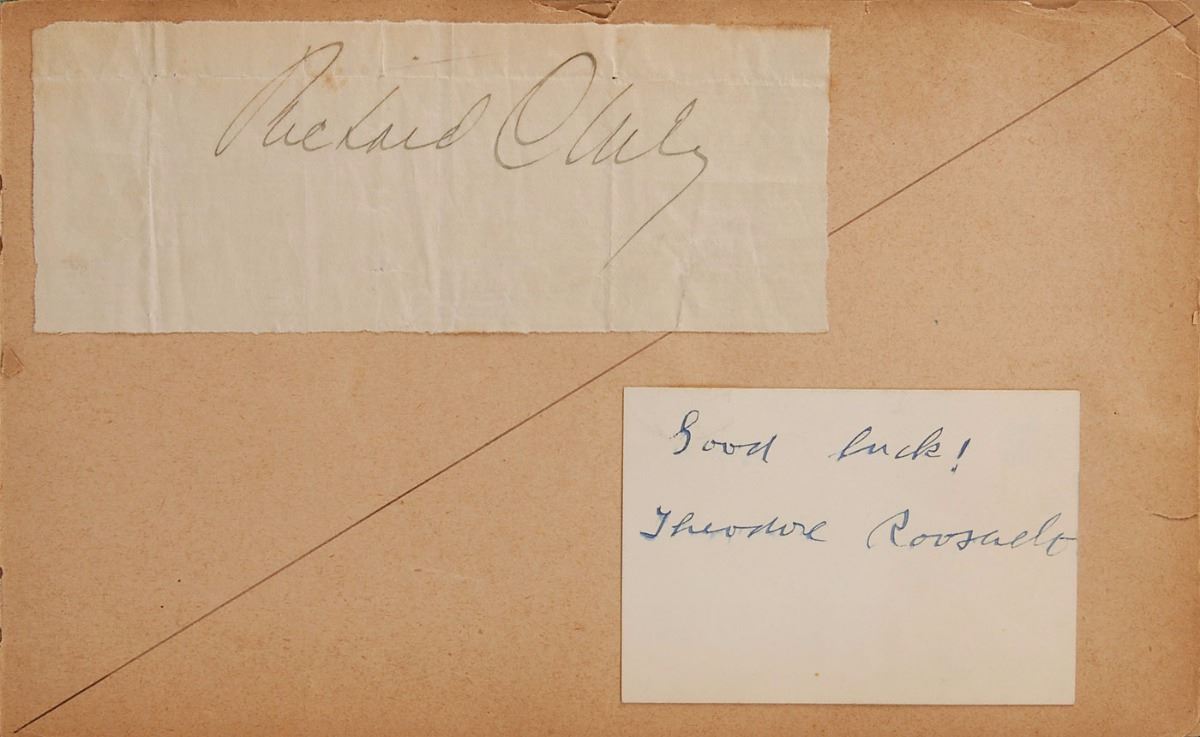 Richard Olney
Good luck!
Theodore Roosevelt